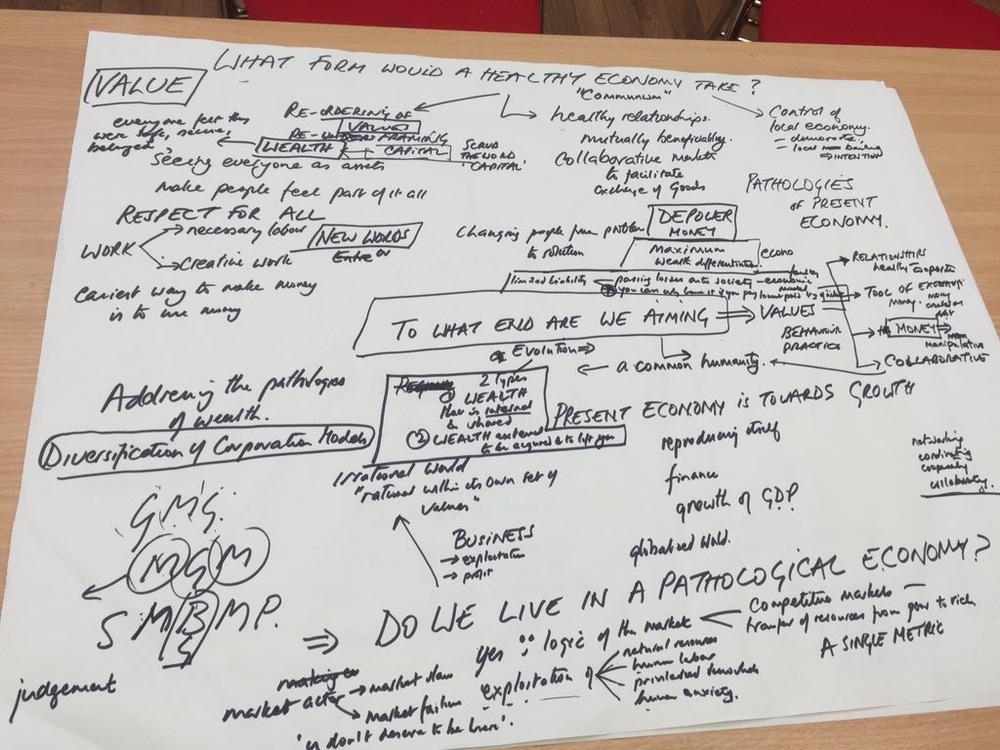 WHAT FORM WOULD A HEALTHY ECONOMY TAKE?
VALUE
"COMMUNUM"
everyone feel they
were safe, secure,
belonged
RE-ORDERING OF
VALUES
FRAMING
WEALTH
CAPITAL
SCRUB
THE WORD
'CAPITAL
Seeing everyone as assets
make people feel part of it all
RESPECT FOR ALL
WORK
necessary labour
creative work
NEW WORDS
easiest way to make money
is to use money
healthy relationships.
mutually beneficiality.
Collaborative markets
to facilitate
exchange of Goods
Control of
local economy.
= democratic
= local banking
INTENTION
PATHOLOGIES
OF PRESENT
ECONOMY.
Changing people from problem
to solution
DEPOWER
MONEY
maximum
wealth differentiation
econo
limited liability
passing losses onto society
TO WHAT END ARE WE AIMING
VALUES
BEHAVIOUR
PRACTICE
RELATIONSHIPS
TOOL OF EXCHANGE
MONEY
manipulative
COLLABORATIVE
Evolution
a common humanity.
Addressing the pathologies
of wealth.
Diversification of Corporation Models
2 types
① WEALTH
that is internal
& shared
② WEALTH external
to be acquired
PRESENT ECONOMY IS TOWARDS GROWTH
reproducing itself
finance
growth of GDP
globalised world.
networking
coordinating
cooperating
collaborating.
Irrational World
"rational within its own set of
values"
BUSINESS
→ exploitation
→ profit
G.M.G.
M G M
S M B M P.
judgement
⇒ DO WE LIVE IN A PATHOLOGICAL ECONOMY?
yes ∵ logic of the market
Competitive markets
transfer of resources from poor to rich
A SINGLE METRIC
exploitation of
natural resources
human labour
human anxiety.
market actor
market failure
don't deserve to be here'.